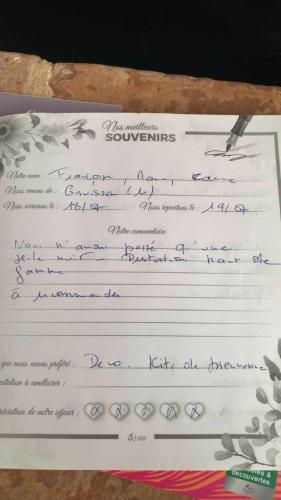 Nos meilleurs
SOUVENIRS
Notre nom : Françoise, Marc,
Nous venons de : Gruissan (11)
Nous arrivons le : 18/07 Nous repartons le : 19/07
Notre commentaire
Nous n'avons passé qu'une
seule nuit - Prestation haut de
gamme
à recommander
que nous avons préféré : Deco. Kits de bienvenue
estation à améliorer :
préciation de notre séjour :
5/100
découvertes